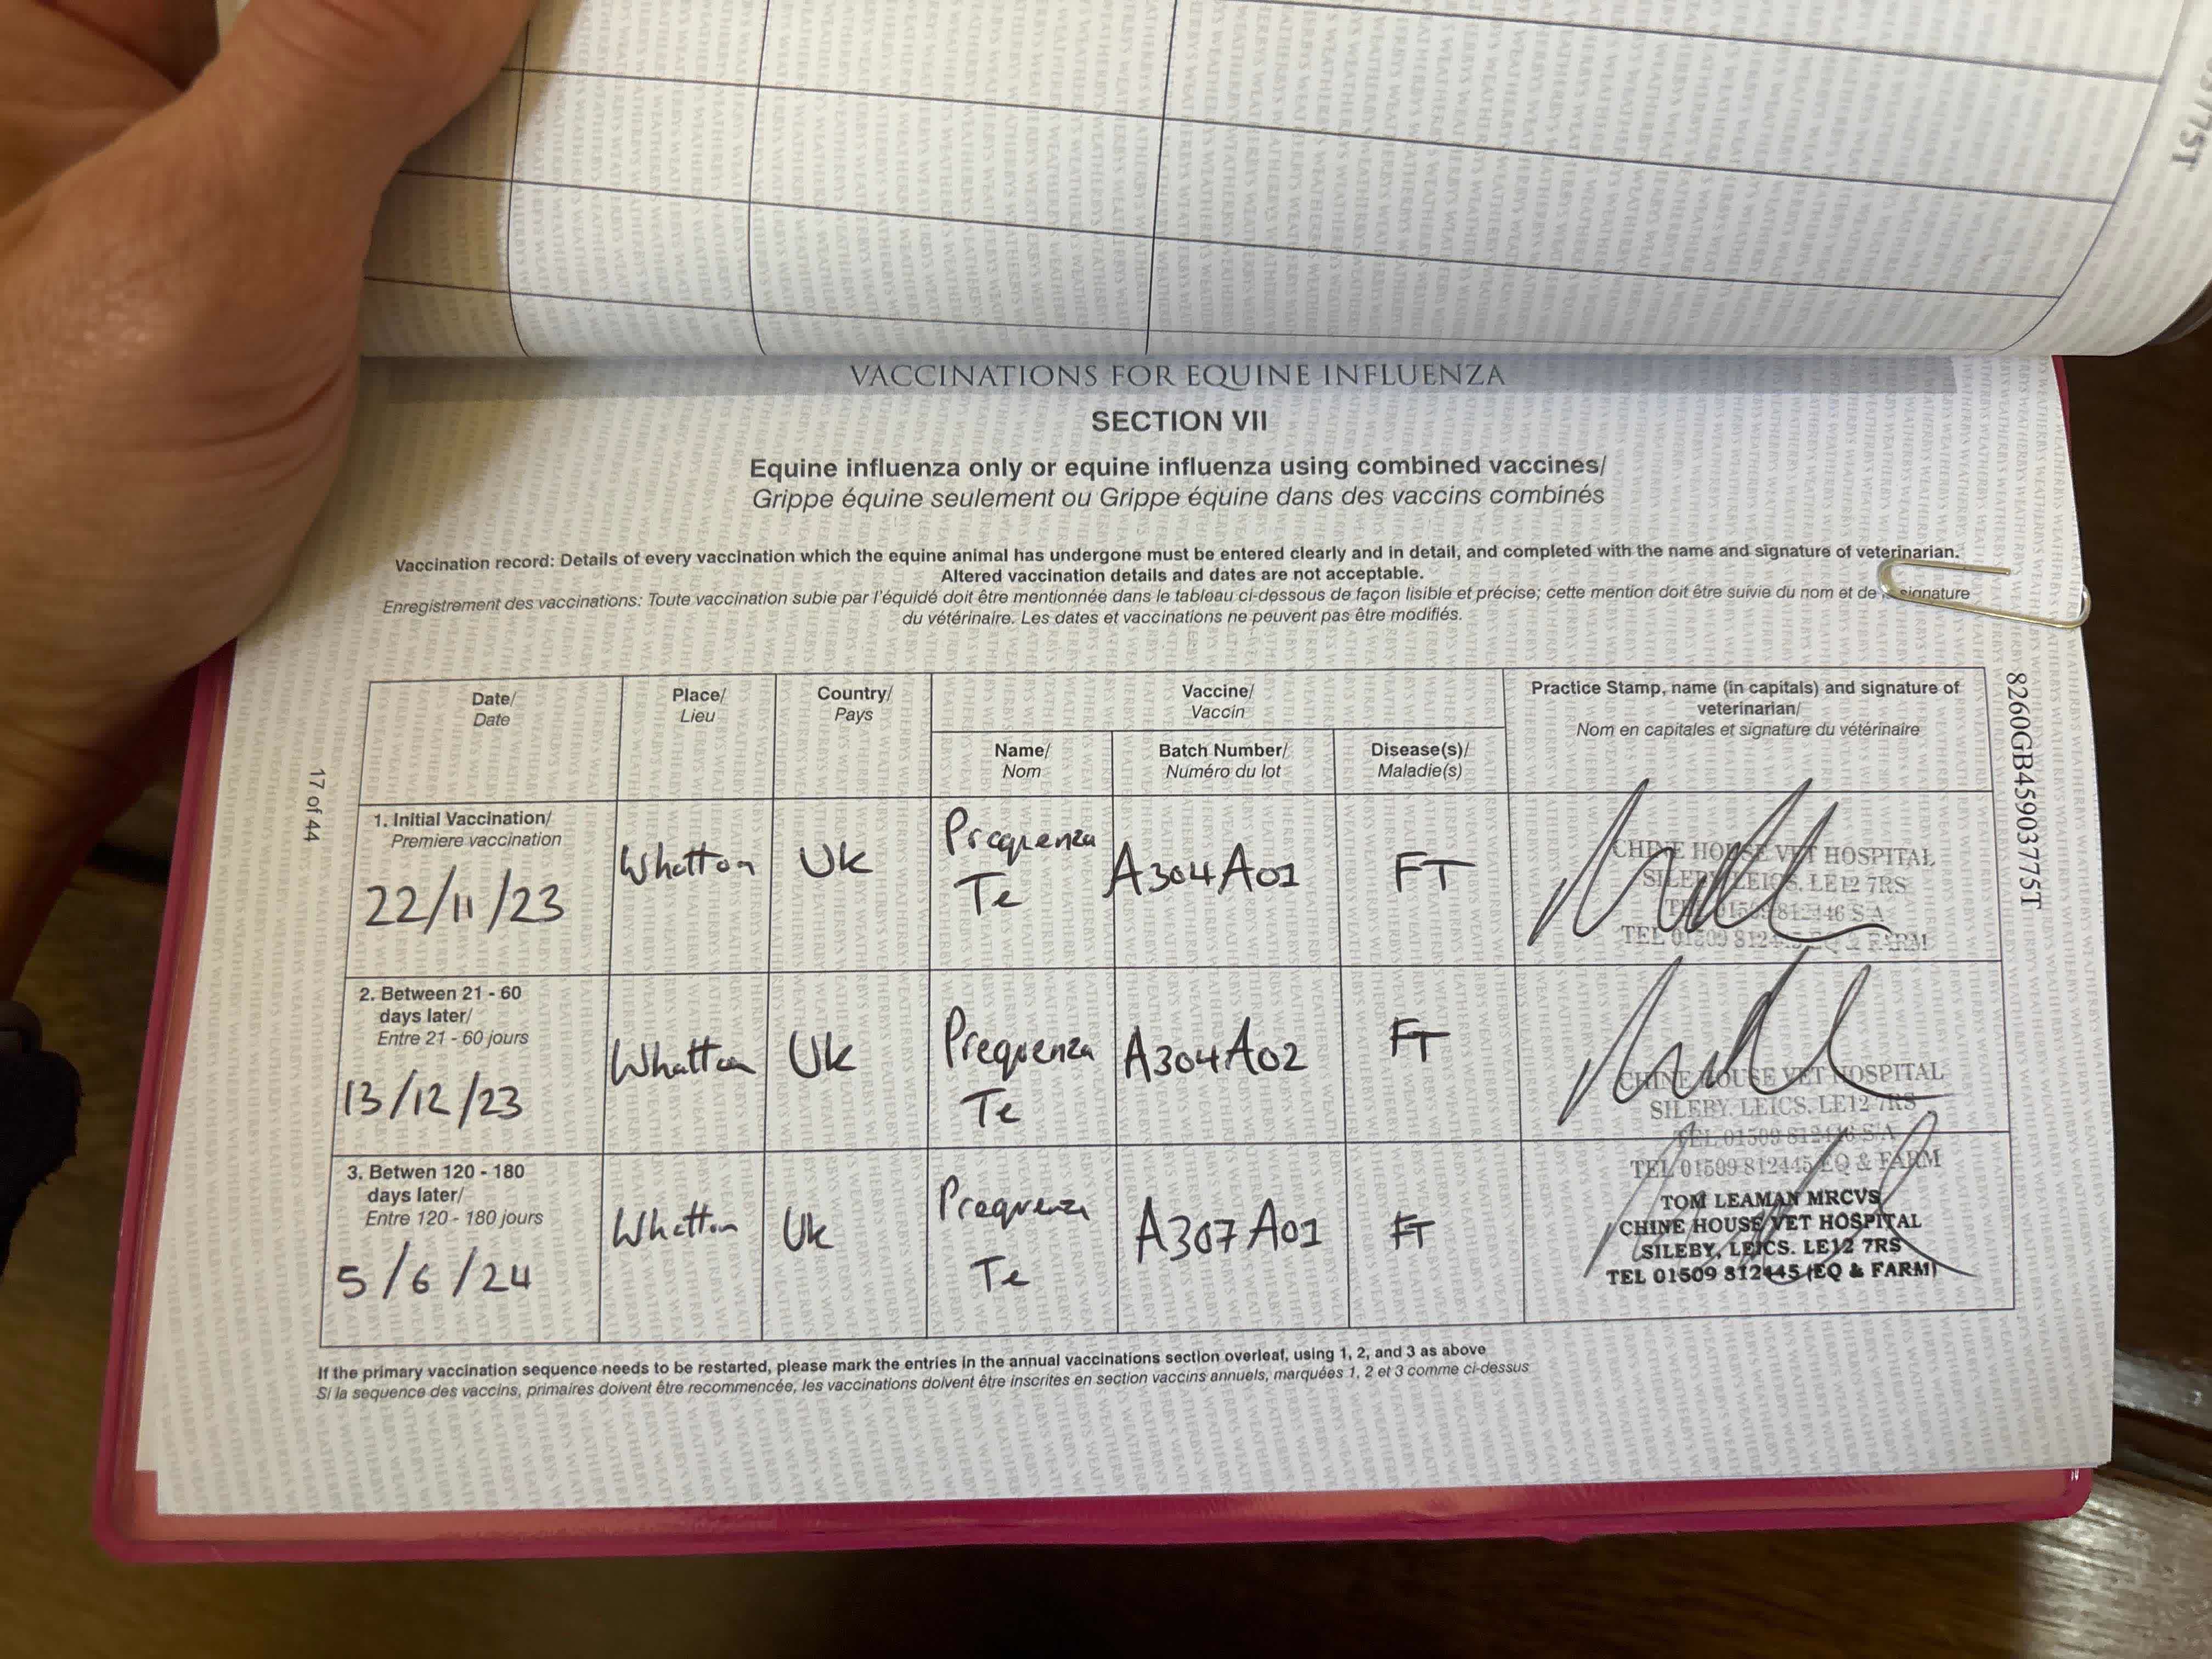 VACCINATIONS FOR EQUINE INFLUENZA
SECTION VII
Equine influenza only or equine influenza using combined vaccines/
Grippe équine seulement ou Grippe équine dans des vaccins combinés
Vaccination record: Details of every vaccination which the equine animal has undergone must be entered clearly and in detail, and completed with the name and signature of veterinarian.
Altered vaccination details and dates are not acceptable.
Enregistrement des vaccinations: Toute vaccination subie par l'équidé doit être mentionnée dans le tableau ci-dessous de façon lisible et précise; cette mention doit être suivie du nom et de signature
du vétérinaire. Les dates et vaccinations ne peuvent pas être modifiés.
Date/
Date
Place/
Lieu
Country/
Pays
Vaccine/
Vaccin
Name/
Nom
Batch Number/
Numéro du lot
Disease(s)/
Maladie(s)
Practice Stamp, name (in capitals) and signature of
veterinarian/
Nom en capitales et signature du vétérinaire
1. Initial Vaccination/
Premiere vaccination
22/11/23
Whatton
Uk
Prequenza
Te
A304A01
FT
CHINE HOUSE VET HOSPITAL
SILEBY, LEICS. LE12 7RS
TEL 01509 812446 S A
TEL 01509 812445 EQ & FARM
2. Between 21 - 60
days later/
Entre 21 - 60 jours
13/12/23
Whatton
Uk
Prequenza
Te
A304A02
FT
CHINE HOUSE VET HOSPITAL
SILEBY, LEICS. LE12 7RS
TEL 01509 812446 S A
TEL 01509 812445 EQ & FARM
3. Betwen 120 - 180
days later/
Entre 120 - 180 jours
5/6/24
Whatton
Uk
Prequenza
Te
A307A01
FT
TOM LEAMAN MRCVS
CHINE HOUSE VET HOSPITAL
SILEBY, LEICS. LE12 7RS
TEL 01509 812445 (EQ & FARM)
If the primary vaccination sequence needs to be restarted, please mark the entries in the annual vaccinations section overleaf, using 1, 2, and 3 as above
Si la sequence des vaccins, primaires doivent être recommencée, les vaccinations doivent être inscrites en section vaccins annuels, marquées 1, 2 et 3 comme ci-dessus
17 of 44
8260GB45903775T